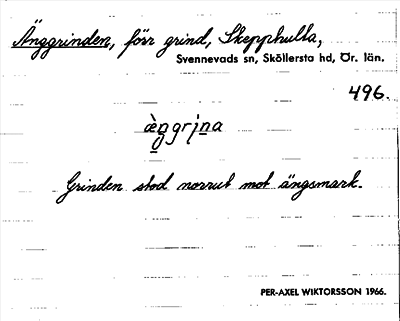 Änggrinden, förr grind, Skepphulta,
Svennevads sn, Sköllersta hd, Ör. län.
496.
æ̀ŋgrịna
Grinden stod norrut mot ängsmark.
PER-AXEL WIKTORSSON 1966.